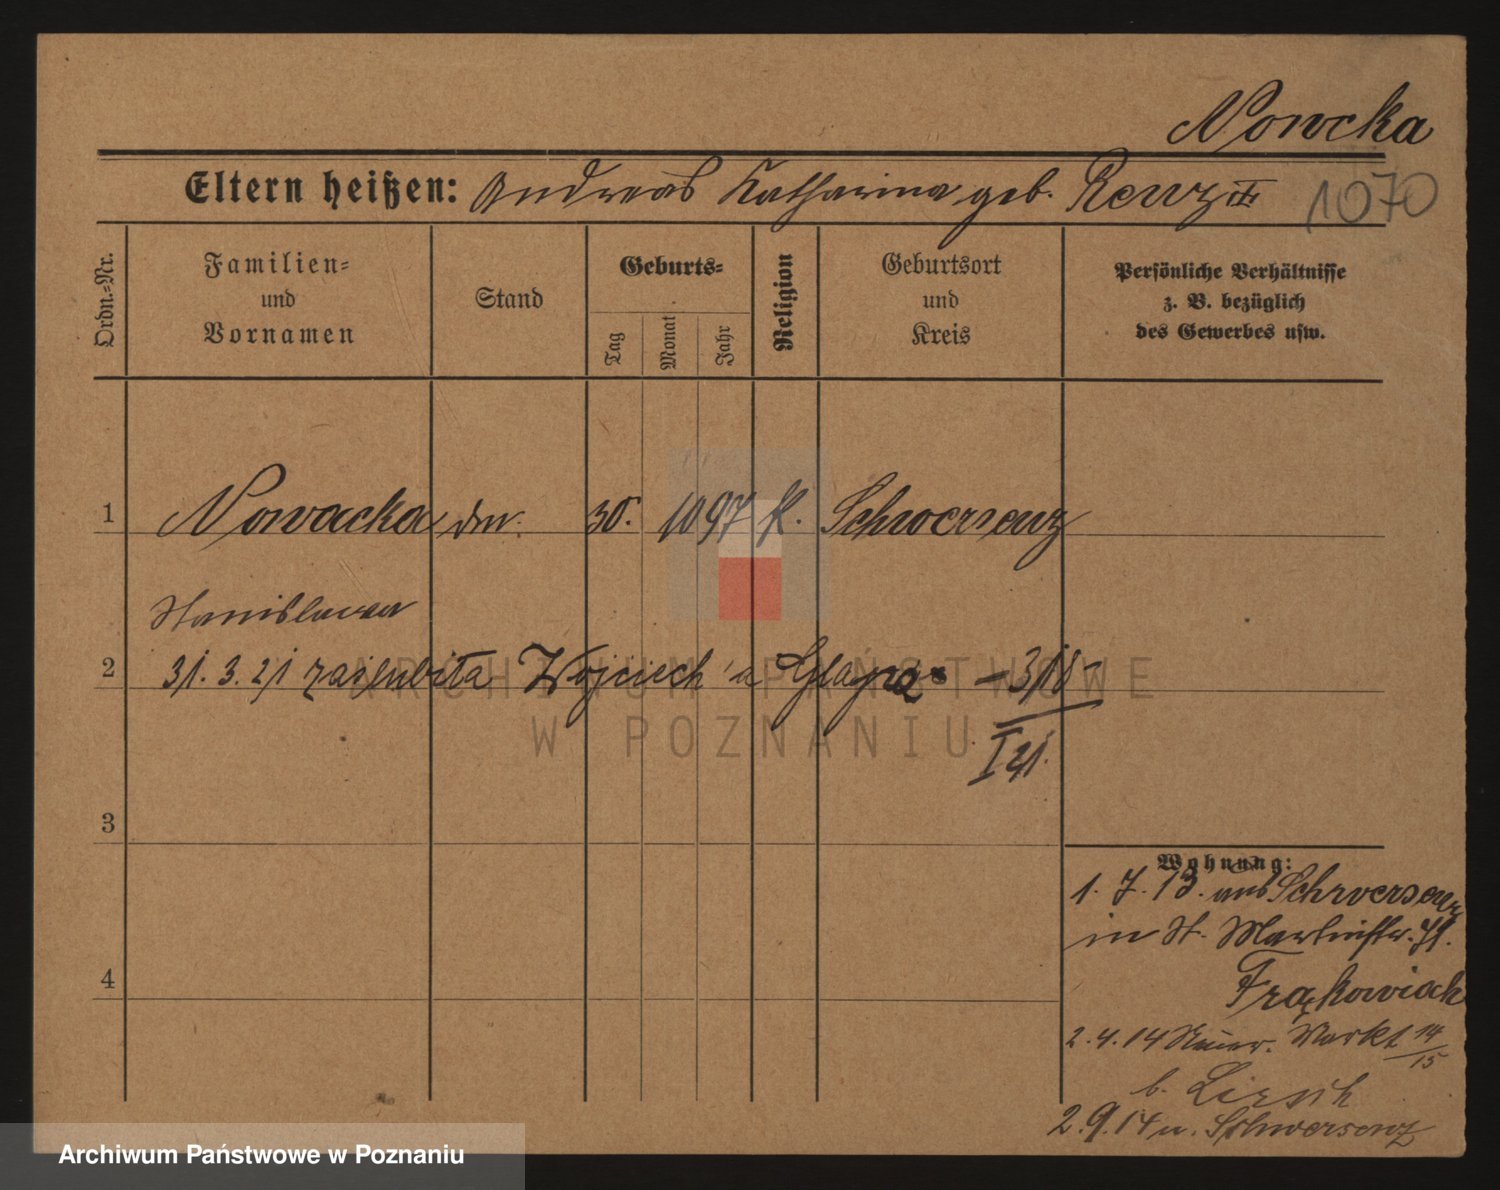 Nowcka
Eltern heißen: Andreas Katharina geb. 1070
Ordn.-Nr. Familien- und Vornamen Stand Geburts- Tag Monat Jahr Religion Geburtsort und Kreis Persönliche Verhältnisse z. B. bezüglich des Gewerbes usw.
1 Nowacka 30. 10 97 k. Schwersenz
Stanislawa
2 31. 3. 21 zaślubiła Wojciech'a - 318 -
I 21.
ARCHIWUM PAŃSTWOWE
W POZNANIU
3
Wohnung:
1. 7. 13. aus Schwersenz
in St. Martinstr. 71.
4
Frąkowiak
2. 4. 14 Markt 14/15
b.
2. 9. 14 n. Schwersenz
Archiwum Państwowe w Poznaniu